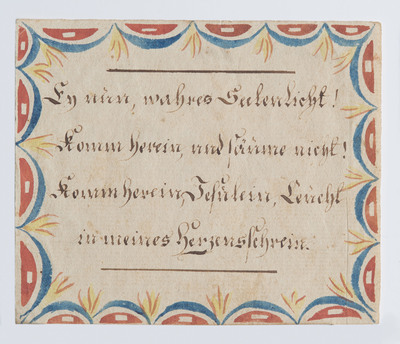 Ey nun, wahres Seelenlicht!
Komm herein, und säume nicht!
Komm herein Jesulein, Leucht
in meines Herzensschrein.